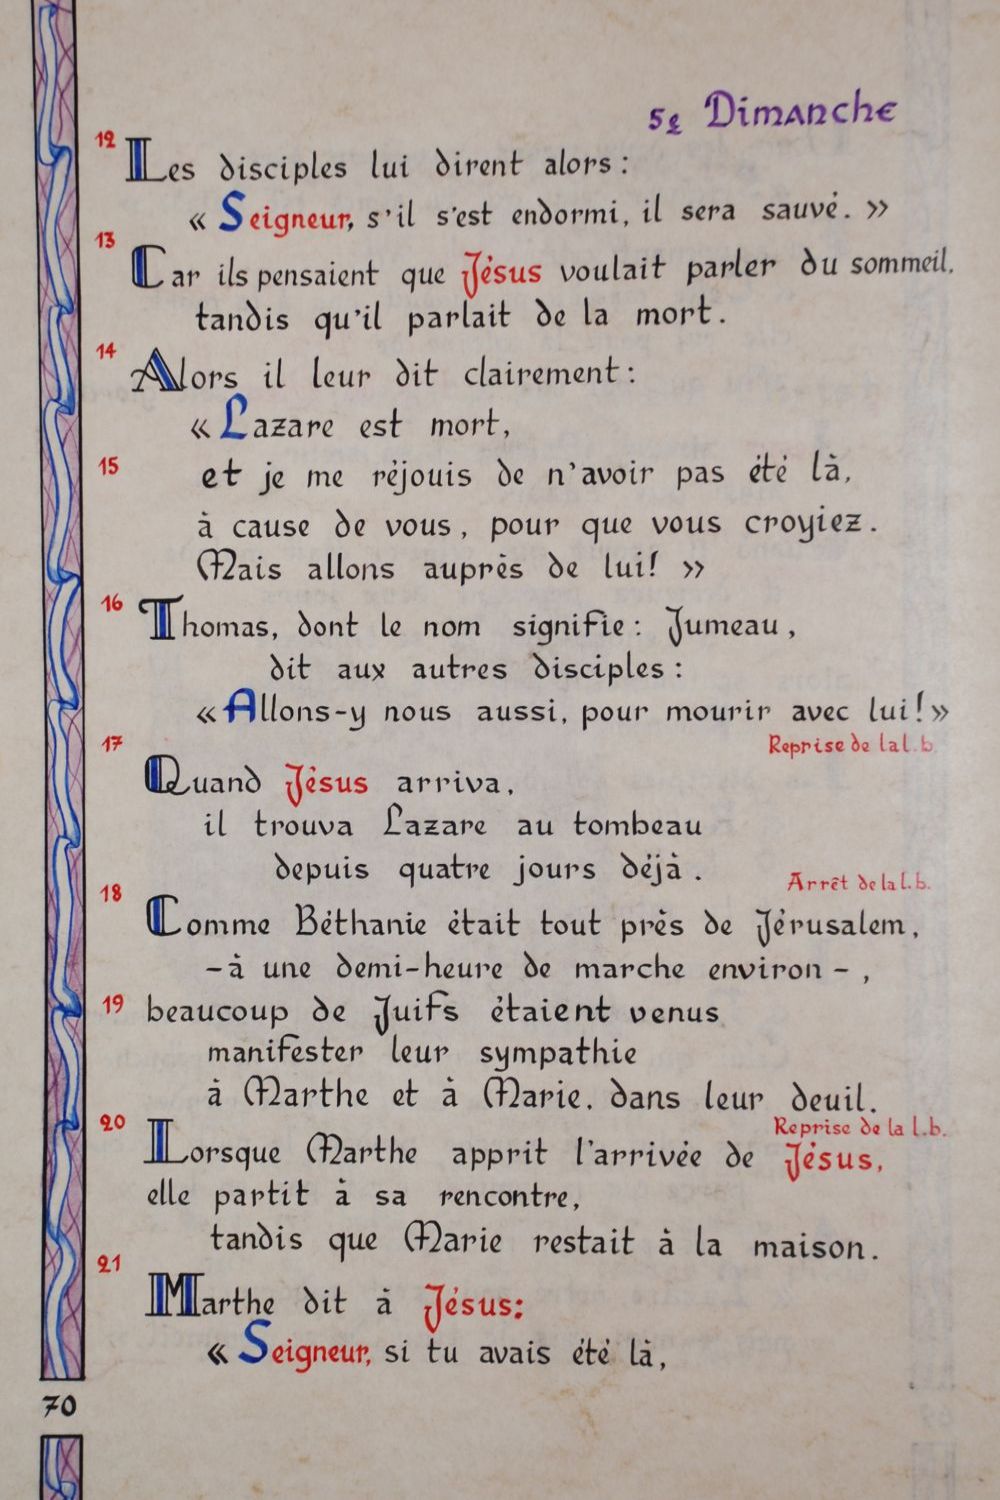 5e Dimanche
12
Les disciples lui dirent alors :
« Seigneur, s'il s'est endormi, il sera sauvé. »
13
Car ils pensaient que Jésus voulait parler du sommeil,
tandis qu'il parlait de la mort.
14
Alors il leur dit clairement :
« Lazare est mort,
15 et je me réjouis de n'avoir pas été là,
à cause de vous, pour que vous croyiez.
Mais allons auprès de lui! »
16
Thomas, dont le nom signifie : Jumeau,
dit aux autres disciples :
« Allons-y nous aussi, pour mourir avec lui! »
Reprise de la l. b.
17
Quand Jésus arriva,
il trouva Lazare au tombeau
depuis quatre jours déjà.
Arrêt de la l. b.
18
Comme Béthanie était tout près de Jérusalem,
- à une demi-heure de marche environ - ,
19 beaucoup de Juifs étaient venus
manifester leur sympathie
à Marthe et à Marie, dans leur deuil.
Reprise de la l. b.
20
Lorsque Marthe apprit l'arrivée de Jésus,
elle partit à sa rencontre,
tandis que Marie restait à la maison.
21
Marthe dit à Jésus:
« Seigneur, si tu avais été là,
70